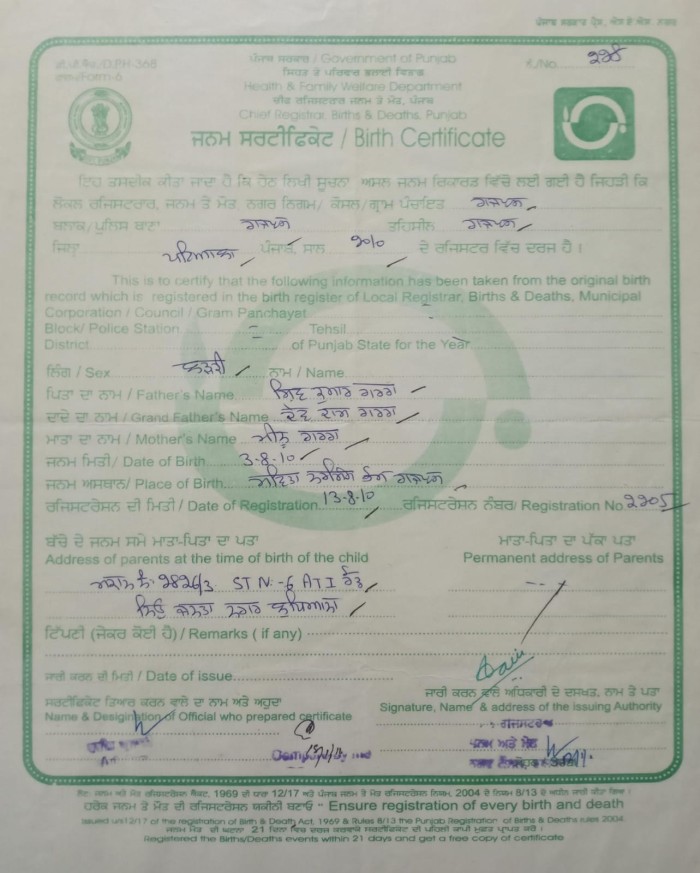 ਡੀ.ਪੀ.ਐਚ./D.PH-368
ਫਾਰਮ/Form-6
ਪੰਜਾਬ ਸਰਕਾਰ / Government of Punjab
ਸਿਹਤ ਤੇ ਪਰਿਵਾਰ ਭਲਾਈ ਵਿਭਾਗ
Health & Family Welfare Department
ਚੀਫ ਰਜਿਸਟਰਾਰ ਜਨਮ ਤੇ ਮੌਤ, ਪੰਜਾਬ
Chief Registrar, Births & Deaths, Punjab
ਜਨਮ ਸਰਟੀਫਿਕੇਟ / Birth Certificate
ਇਹ ਤਸਦੀਕ ਕੀਤਾ ਜਾਦਾ ਹੈ ਕਿ ਹੇਠ ਲਿਖੀ ਸੂਚਨਾ ਅਸਲ ਜਨਮ ਰਿਕਾਰਡ ਵਿੱਚੋਂ ਲਈ ਗਈ ਹੈ ਜਿਹੜੀ ਕਿ
ਲੋਕਲ ਰਜਿਸਟਰਾਰ, ਜਨਮ ਤੇ ਮੌਤ ਨਗਰ ਨਿਗਮ/ ਕੌਂਸਲ/ਗ੍ਰਾਮ ਪੰਚਾਇਤ
ਬਲਾਕ/ਪੁਲਿਸ ਥਾਣਾ ਤਹਿਸੀਲ
ਜਿਲਾ ਪਟਿਆਲਾ ਪੰਜਾਬ, ਸਾਲ ੨੦੧੦ ਦੇ ਰਜਿਸਟਰ ਵਿੱਚ ਦਰਜ ਹੈ ।
This is to certify that the following information has been taken from the original birth
record which is registered in the birth register of Local Registrar, Births & Deaths, Municipal
Corporation / Council / Gram Panchayat
Block/ Police Station Tehsil
District of Punjab State for the Year
ਲਿੰਗ / Sex ਲੜਕੀ ਨਾਮ / Name
ਪਿਤਾ ਦਾ ਨਾਮ / Father's Name ਸ਼ਿਵ ਕੁਮਾਰ ਗਰਗ
ਦਾਦੇ ਦਾ ਨਾਮ / Grand Father's Name ਦੇਵ ਰਾਜ ਗਰਗ
ਮਾਤਾ ਦਾ ਨਾਮ / Mother's Name ਮੀਨੂ ਗਰਗ
ਜਨਮ ਮਿਤੀ/ Date of Birth 3-8-10
ਜਨਮ ਅਸਥਾਨ/ Place of Birth
ਰਜਿਸਟਰੇਸਨ ਦੀ ਮਿਤੀ / Date of Registration 13-8-10 ਰਜਿਸਟਰੇਸਨ ਨੰਬਰ/ Registration No.
ਬੱਚੇ ਦੇ ਜਨਮ ਸਮੇਂ ਮਾਤਾ-ਪਿਤਾ ਦਾ ਪਤਾ
Address of parents at the time of birth of the child
ਮਾਤਾ-ਪਿਤਾ ਦਾ ਪੱਕਾ ਪਤਾ
Permanent address of Parents
ਮਕਾਨ ਨੰ: ST N:-6 ATI ਰੋਡ
ਨਿਊ ਜਨਤਾ ਨਗਰ ਲੁਧਿਆਣਾ
ਟਿੱਪਣੀ (ਜੇਕਰ ਕੋਈ ਹੈ) / Remarks ( if any)
ਜਾਰੀ ਕਰਨ ਦੀ ਮਿਤੀ / Date of issue
ਸਰਟੀਫਿਕੇਟ ਤਿਆਰ ਕਰਨ ਵਾਲੇ ਦਾ ਨਾਮ ਅਤੇ ਅਹੁਦਾ
Name & Desigination of Official who prepared certificate
ਜਾਰੀ ਕਰਨ ਵਾਲੇ ਅਧਿਕਾਰੀ ਦੇ ਦਸਖਤ, ਨਾਮ ਤੇ ਪਤਾ
Signature, Name & address of the issuing Authority
ਜਨਮ ਅਤੇ ਮੌਤ
ਨੋਟ: ਜਨਮ ਅਤੇ ਮੌਤ ਰਜਿਸਟਰੇਸ਼ਨ ਐਕਟ, 1969 ਦੀ ਧਾਰਾ 12/17 ਅਤੇ ਪੰਜਾਬ ਜਨਮ ਅਤੇ ਮੌਤ ਰਜਿਸਟਰੇਸ਼ਨ ਨਿਯਮ, 2004 ਦੇ ਨਿਯਮ 8/13 ਦੇ ਅਧੀਨ ਜਾਰੀ ਕੀਤਾ ਗਿਆ ।
ਹਰੇਕ ਜਨਮ ਤੇ ਮੌਤ ਦੀ ਰਜਿਸਟਰੇਸ਼ਨ ਯਕੀਨੀ ਬਣਾਓ " Ensure registration of every birth and death
Issued u/s12/17 of the registration of Birth & Death Act, 1969 & Rules 8/13 the Punjab Registration of Births & Deaths rules 2004.
ਜਨਮ ਮੌਤ ਦੀ ਘਟਨਾ 21 ਦਿਨਾਂ ਵਿੱਚ ਦਰਜ ਕਰਵਾਕੇ ਸਰਟੀਫਿਕੇਟ ਦੀ ਪਹਿਲੀ ਕਾਪੀ ਮੁਫਤ ਪ੍ਰਾਪਤ ਕਰੋ ।
Registered the Births/Deaths events within 21 days and get a free copy of certificate